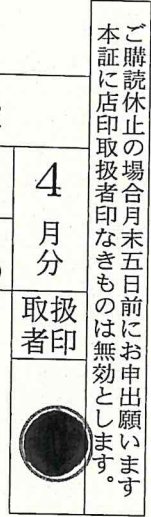 ご購読休止の場合月末五日前にお申出願います
本証に店印取扱者印なきものは無効とします。
4
月
分
取扱
者印